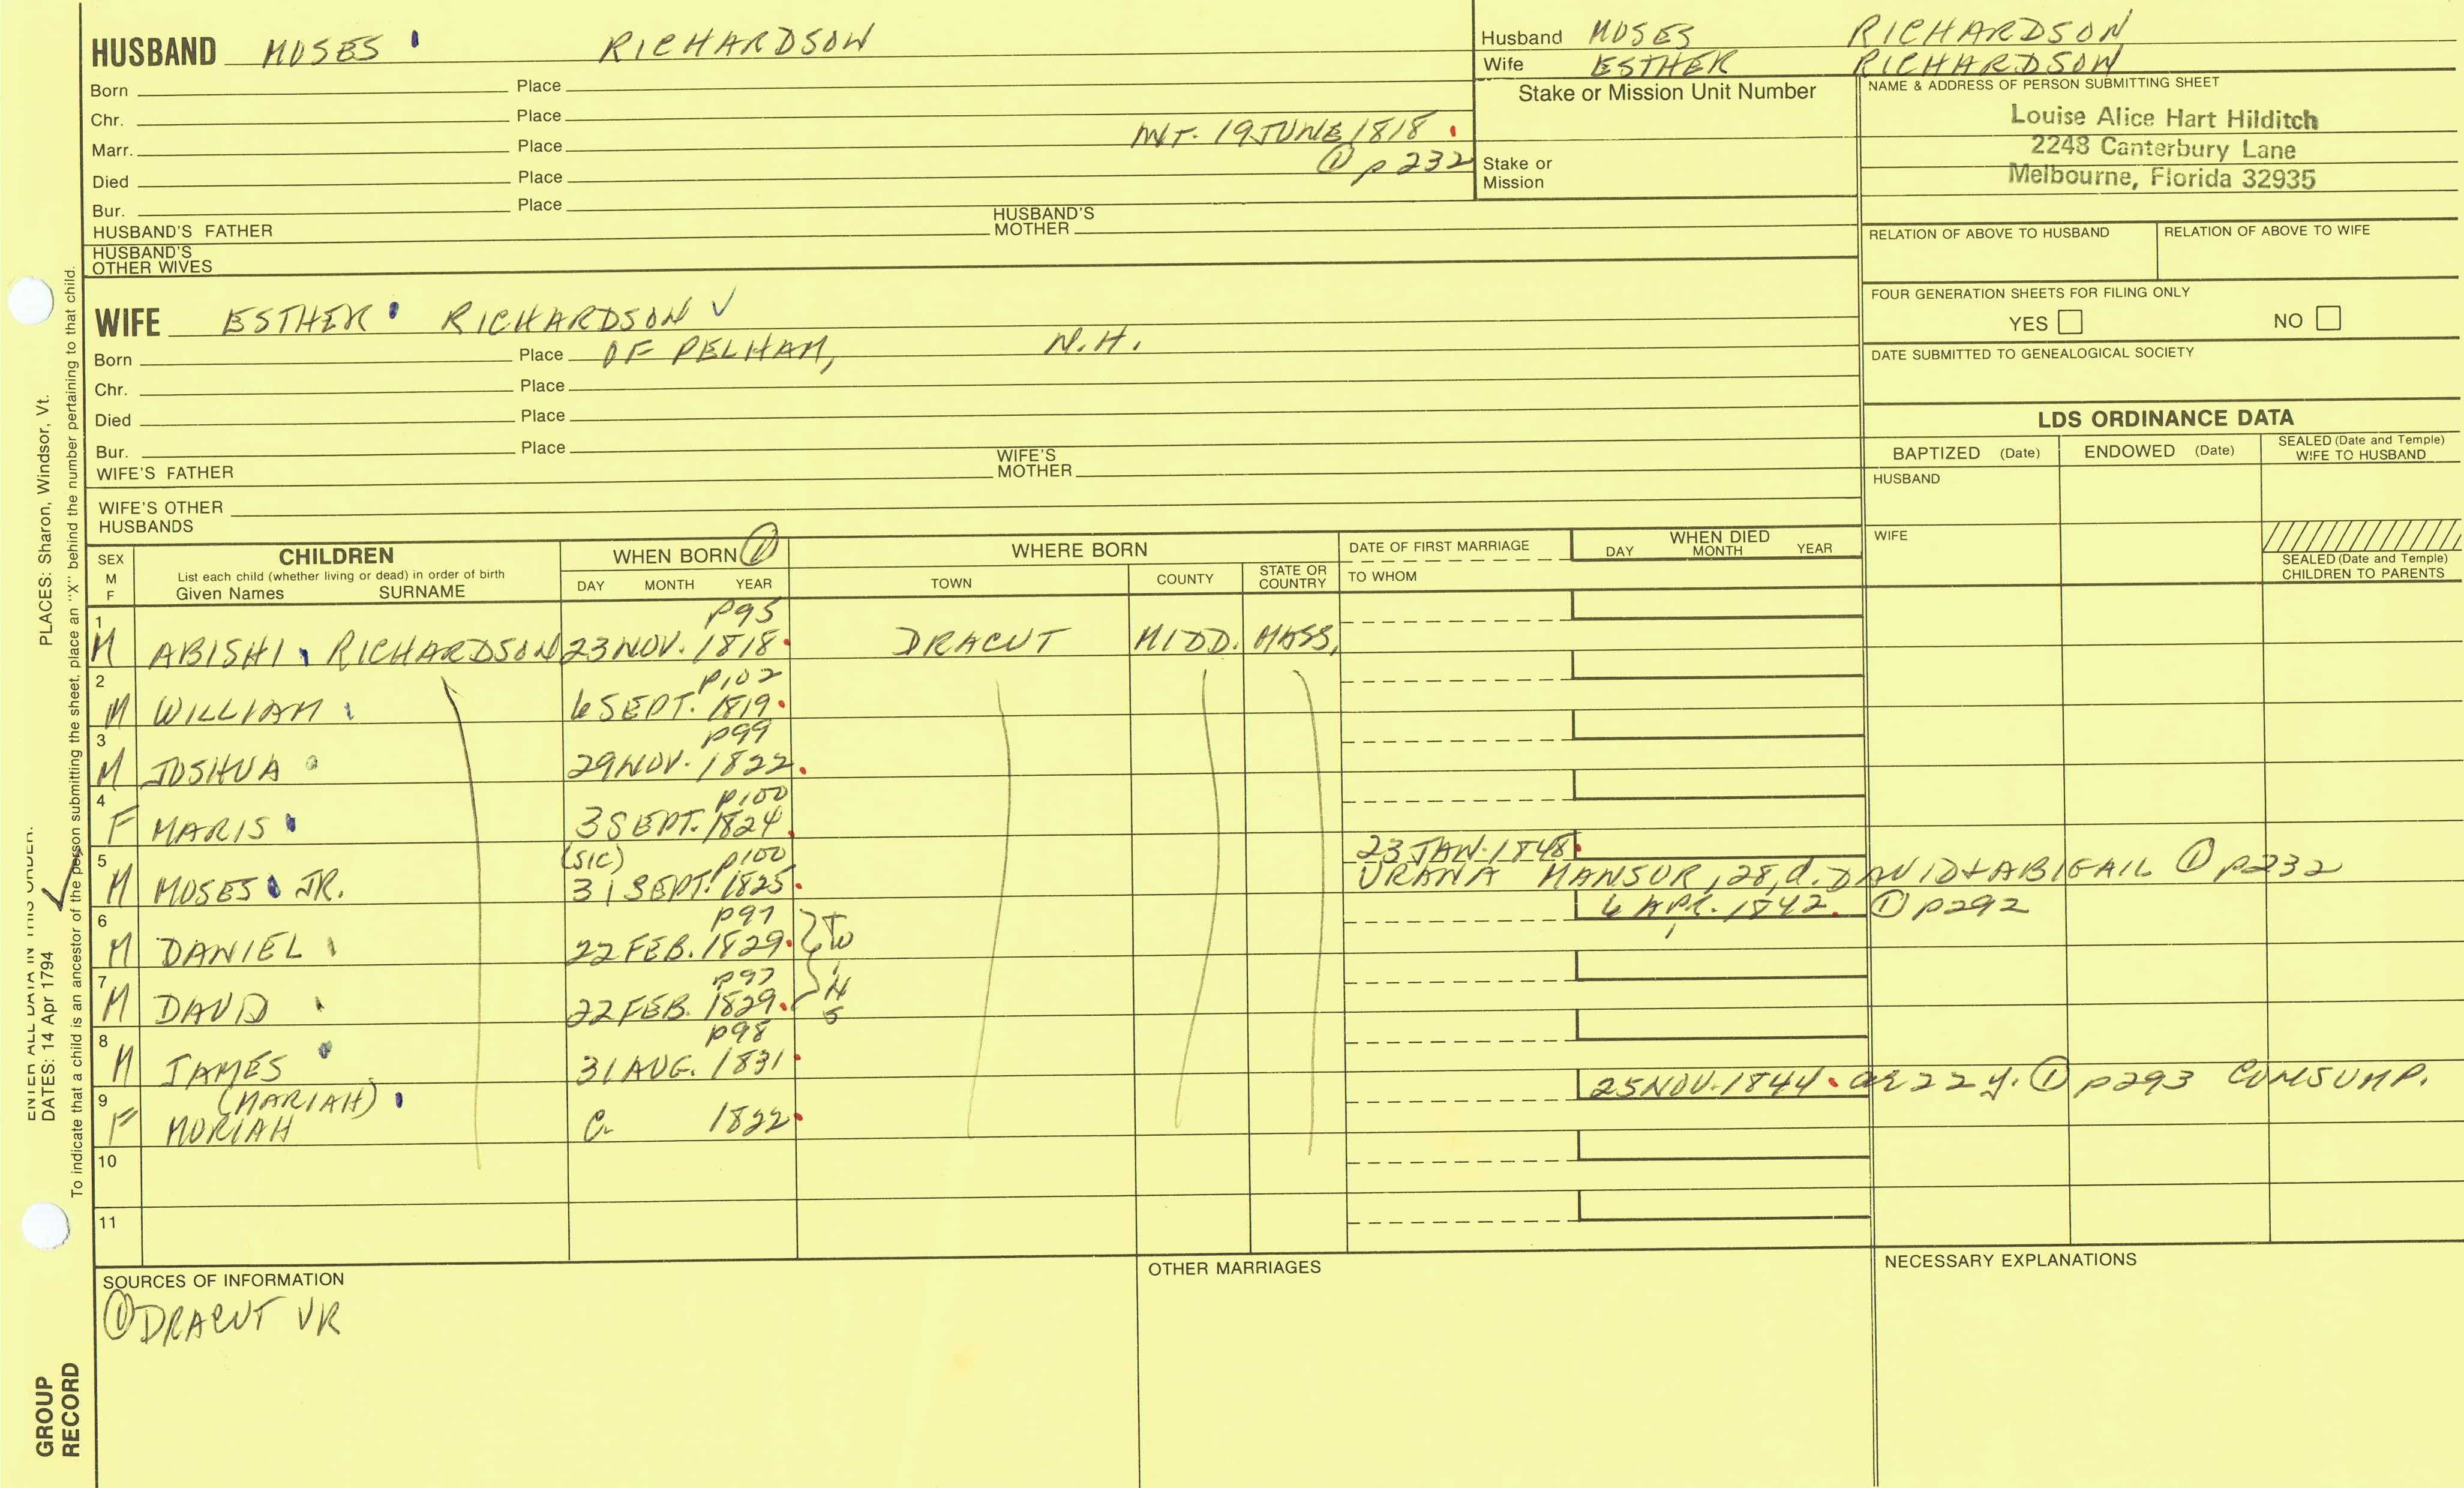 HUSBAND MOSES RICHARDSON
Born Place
Chr. Place
Marr. Place INT. 19 JUNE 1818.
Died Place ① p232
Bur. Place
HUSBAND'S FATHER HUSBAND'S MOTHER
HUSBAND'S OTHER WIVES
Husband MOSES RICHARDSON
Wife ESTHER RICHARDSON
Stake or Mission Unit Number
Stake or Mission
NAME & ADDRESS OF PERSON SUBMITTING SHEET
Louise Alice Hart Hilditch
2248 Canterbury Lane
Melbourne, Florida 32935
RELATION OF ABOVE TO HUSBAND RELATION OF ABOVE TO WIFE
FOUR GENERATION SHEETS FOR FILING ONLY
YES NO
DATE SUBMITTED TO GENEALOGICAL SOCIETY
WIFE ESTHER RICHARDSON ✓
Born Place OF PELHAM, N.H.
Chr. Place
Died Place
Bur. Place
WIFE'S FATHER WIFE'S MOTHER
WIFE'S OTHER HUSBANDS
LDS ORDINANCE DATA
BAPTIZED (Date) ENDOWED (Date) SEALED (Date and Temple) WIFE TO HUSBAND
HUSBAND
WIFE
SEALED (Date and Temple) CHILDREN TO PARENTS
SEX M F
CHILDREN
List each child (whether living or dead) in order of birth
Given Names SURNAME
WHEN BORN ①
DAY MONTH YEAR
WHERE BORN
TOWN COUNTY STATE OR COUNTRY
DATE OF FIRST MARRIAGE
TO WHOM
WHEN DIED
DAY MONTH YEAR
p95
1 M ABISHI RICHARDSON 23 NOV. 1818. DRACUT MIDD. MASS.
p102
2 M WILLIAM 6 SEPT. 1819.
p99
3 M JOSHUA 29 NOV. 1822.
p100
4 F MARIS 3 SEPT. 1824.
(SIC) p100 23 JAN. 1848.
5 M MOSES JR. 31 SEPT. 1825. URANA MANSUR, 28, d. DAVID + ABIGAIL ① p232
p97 6 APR. 1842. ① p292
6 M DANIEL 22 FEB. 1829. } TWINS
p97
7 M DAVID 22 FEB. 1829.
p98
8 M JAMES 31 AUG. 1831.
(MARIAH) 25 NOV. 1844. ae 22 y. ① p293 CONSUMP.
9 F MORIAH C. 1822.
10
11
SOURCES OF INFORMATION
① DRACUT VR
OTHER MARRIAGES
NECESSARY EXPLANATIONS
ENTER ALL DATA IN THIS ORDER:
DATES: 14 Apr 1794
PLACES: Sharon, Windsor, Vt.
To indicate that a child is an ancestor of the person submitting the sheet, place an "X" behind the number pertaining to that child.
GROUP RECORD